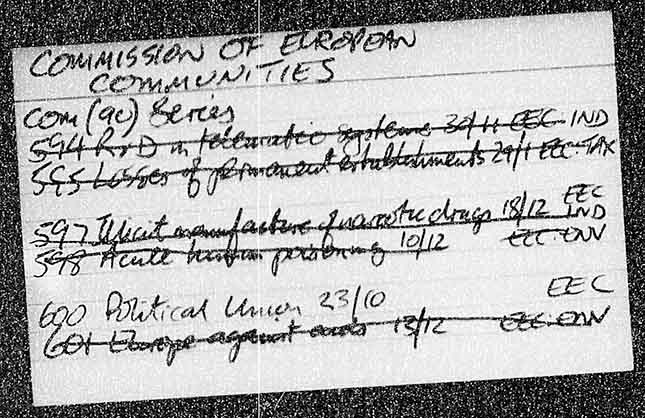 COMMISSION OF EUROPEAN
COMMUNITIES
COM (90) Series
594 R+D in telematic systems 30/11 EEC-IND
595 Losses of permanent establishments 29/1 EEC-TAX
597 Illicit manufacture of narcotic drugs 18/12 EEC
IND
598 Acute human poisoning 10/12 EEC-ENV
600 Political Union 23/10 EEC
601 Europe against 13/12 EEC-ENV